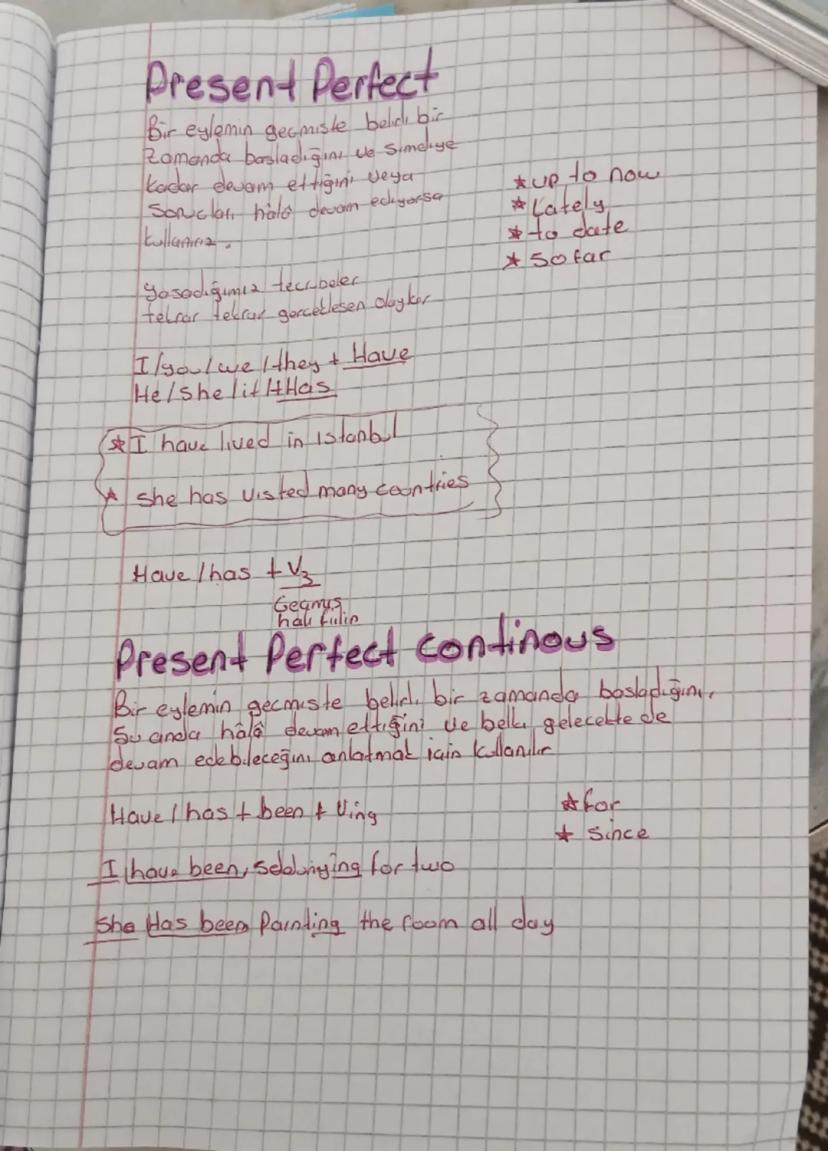 Present Perfect
Bir eylemin geçmişte belirli bir
zamanda başladığını ve şimdiye
kadar devam ettiğini veya
sonuçları hâlâ devam ediyorsa
kullanırız.
* up to now
* Lately
* to date
* So far
yaşadığımız tecrübeler
tekrar tekrar gerçekleşen olaylar
I/you/we/they + Have
He/she/it/+Has
* I have lived in istanbul
* she has visted many countries
Have/has + V3
Geçmiş
hali fiilin
Present Perfect continous
Bir eylemin geçmişte belirli bir zamanda başladığını,
Şu anda hâlâ devam ettiğini ve belki gelecekte de
devam edebileceğini anlatmak için kullanılır
Have/has + been + Ving
* for
* since
I have been, for two
She Has been Painting the room all day